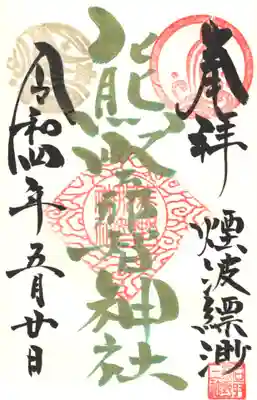 奉拝
煙波縹渺
熊野神社
令和四年
五月廿日